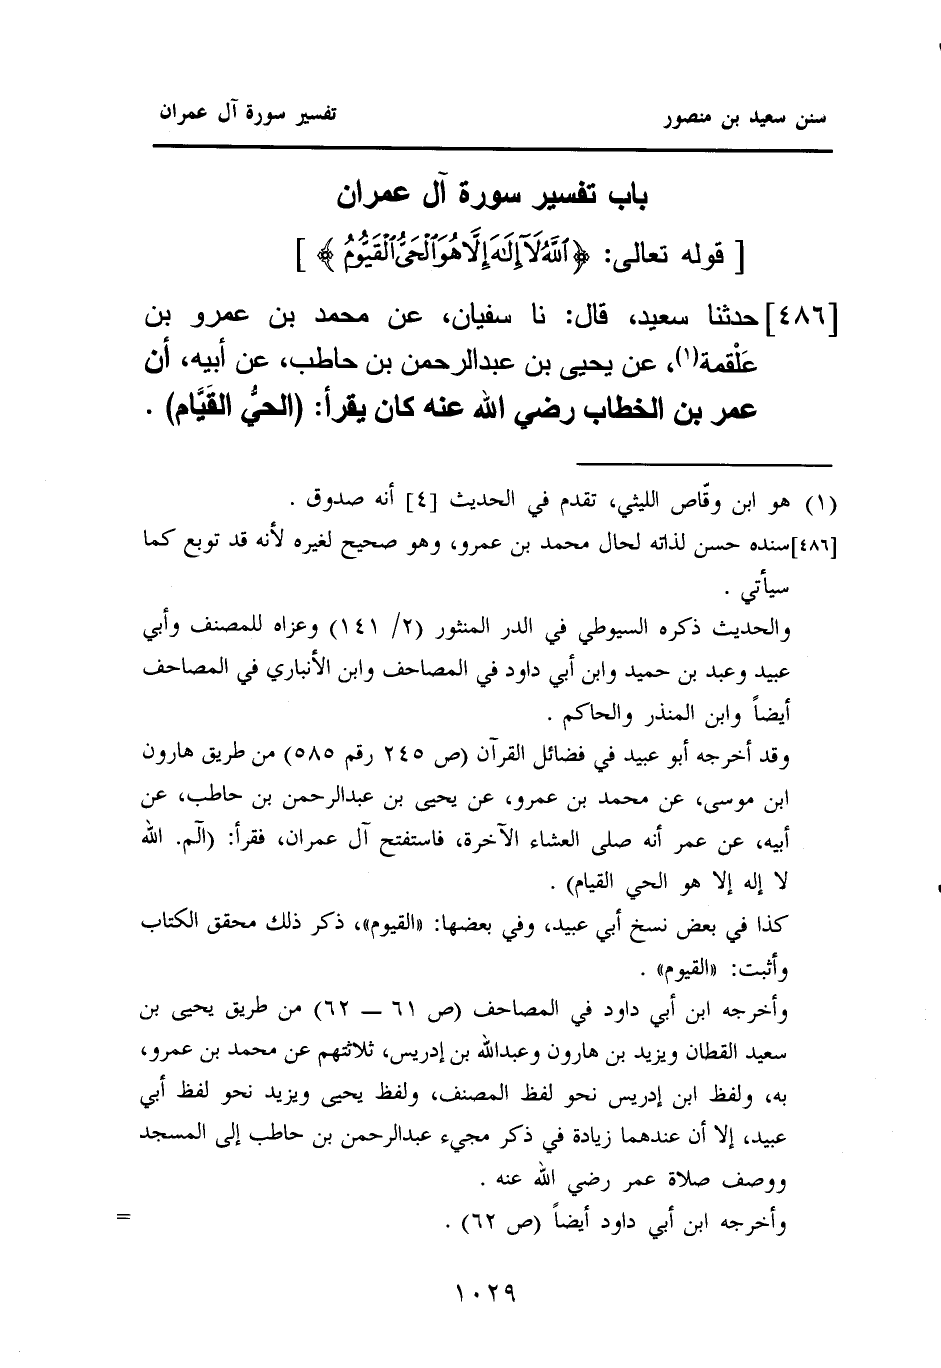 سنن سعيد بن منصور
تفسير سورة آل عمران
باب تفسير سورة آل عمران
[ قوله تعالى: ﴿ٱللَّهُ لَآ إِلَٰهَ إِلَّا هُوَ ٱلْحَىُّ ٱلْقَيُّومُ﴾ ]
[٤٨٦] حدثنا سعيد، قال: نا سفيان، عن محمد بن عمرو بن
عَلْقمة(١)، عن يحيى بن عبدالرحمن بن حاطب، عن أبيه، أن
عمر بن الخطاب رضي الله عنه كان يقرأ: (الحيُّ القَيَّام) .
(١) هو ابن وقّاص الليثي، تقدم في الحديث [٤] أنه صدوق .
[٤٨٦] سنده حسن لذاته لحال محمد بن عمرو، وهو صحيح لغيره لأنه قد توبع كما
سيأتي .
والحديث ذكره السيوطي في الدر المنثور (٢/ ١٤١) وعزاه للمصنف وأبي
عبيد وعبد بن حميد وابن أبي داود في المصاحف وابن الأنباري في المصاحف
أيضاً وابن المنذر والحاكم .
وقد أخرجه أبو عبيد في فضائل القرآن (ص ٢٤٥ رقم ٥٨٥) من طريق هارون
ابن موسى، عن محمد بن عمرو، عن يحيى بن عبدالرحمن بن حاطب، عن
أبيه، عن عمر أنه صلى العشاء الآخرة، فاستفتح آل عمران، فقرأ: (الٓم. الله
لا إله إلا هو الحي القيام) .
كذا في بعض نسخ أبي عبيد، وفي بعضها: «القيوم»، ذكر ذلك محقق الكتاب
وأثبت: «القيوم» .
وأخرجه ابن أبي داود في المصاحف (ص ٦١ — ٦٢) من طريق يحيى بن
سعيد القطان ويزيد بن هارون وعبدالله بن إدريس، ثلاثتهم عن محمد بن عمرو،
به، ولفظ ابن إدريس نحو لفظ المصنف، ولفظ يحيى ويزيد نحو لفظ أبي
عبيد، إلا أن عندهما زيادة في ذكر مجيء عبدالرحمن بن حاطب إلى المسجد
ووصف صلاة عمر رضي الله عنه .
وأخرجه ابن أبي داود أيضاً (ص ٦٢) .
=
١٠٢٩